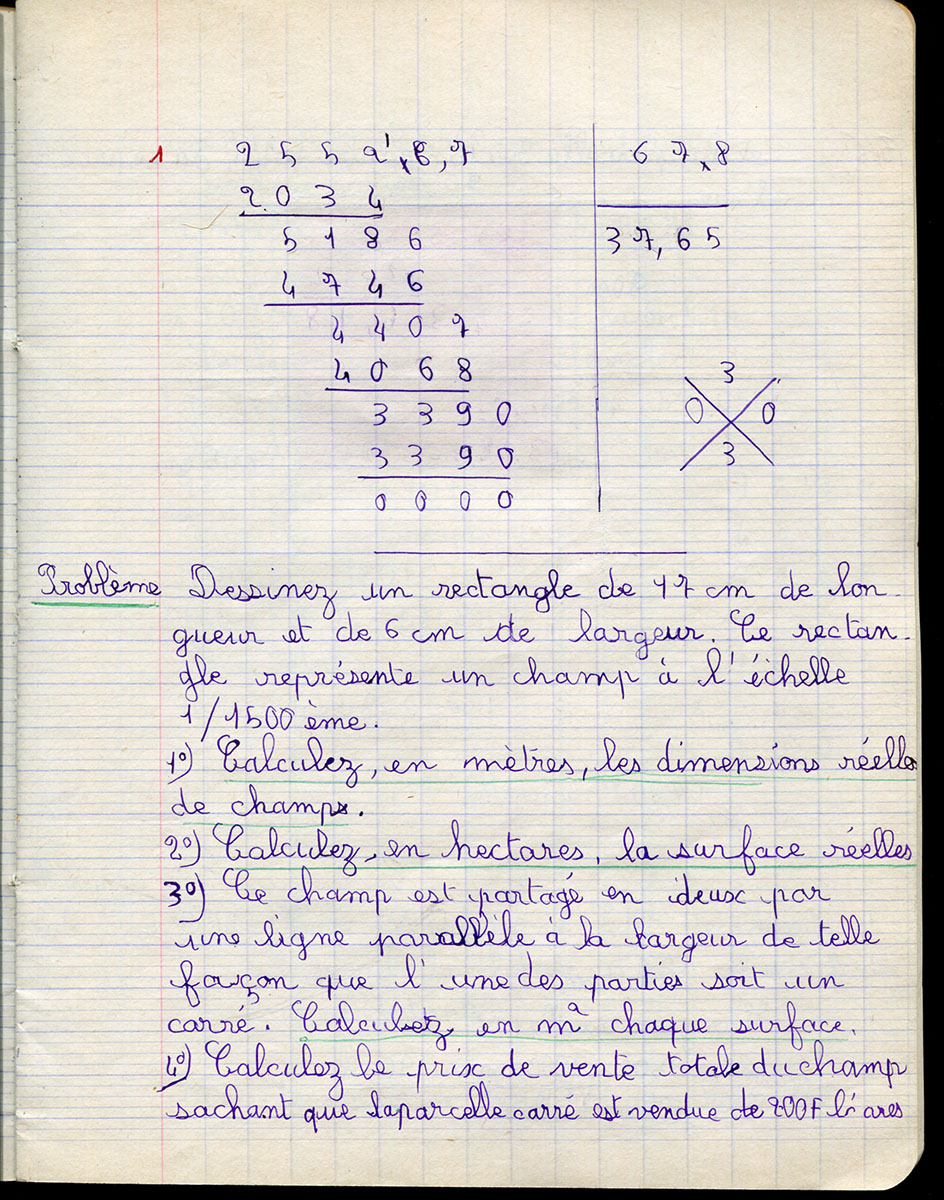 1 2 5 5 2' , 6 , 7 6 7 , 8
2 0 3 4
5 1 8 6 3 7 , 6 5
4 7 4 6
4 4 0 7
4 0 6 8 3
3 3 9 0 0 0
3 3 9 0 3
0 0 0 0
Problème Dessinez un rectangle de 17 cm de lon-
gueur et de 6 cm de largeur. Ce rectan-
gle représente un champ à l'échelle
1/1500 ème.
1°) Calculez, en mètres, les dimensions réelles
de champs.
2°) Calculez, en hectares, la surface réelles
3°) Ce champ est partagé en deux par
une ligne parallèle à la largeur de telle
façon que l'une des parties soit un
carré. Calculez en m² chaque surface.
4°) Calculez le prix de vente totale du champ
sachant que la parcelle carré est vendue de 200F l'ares